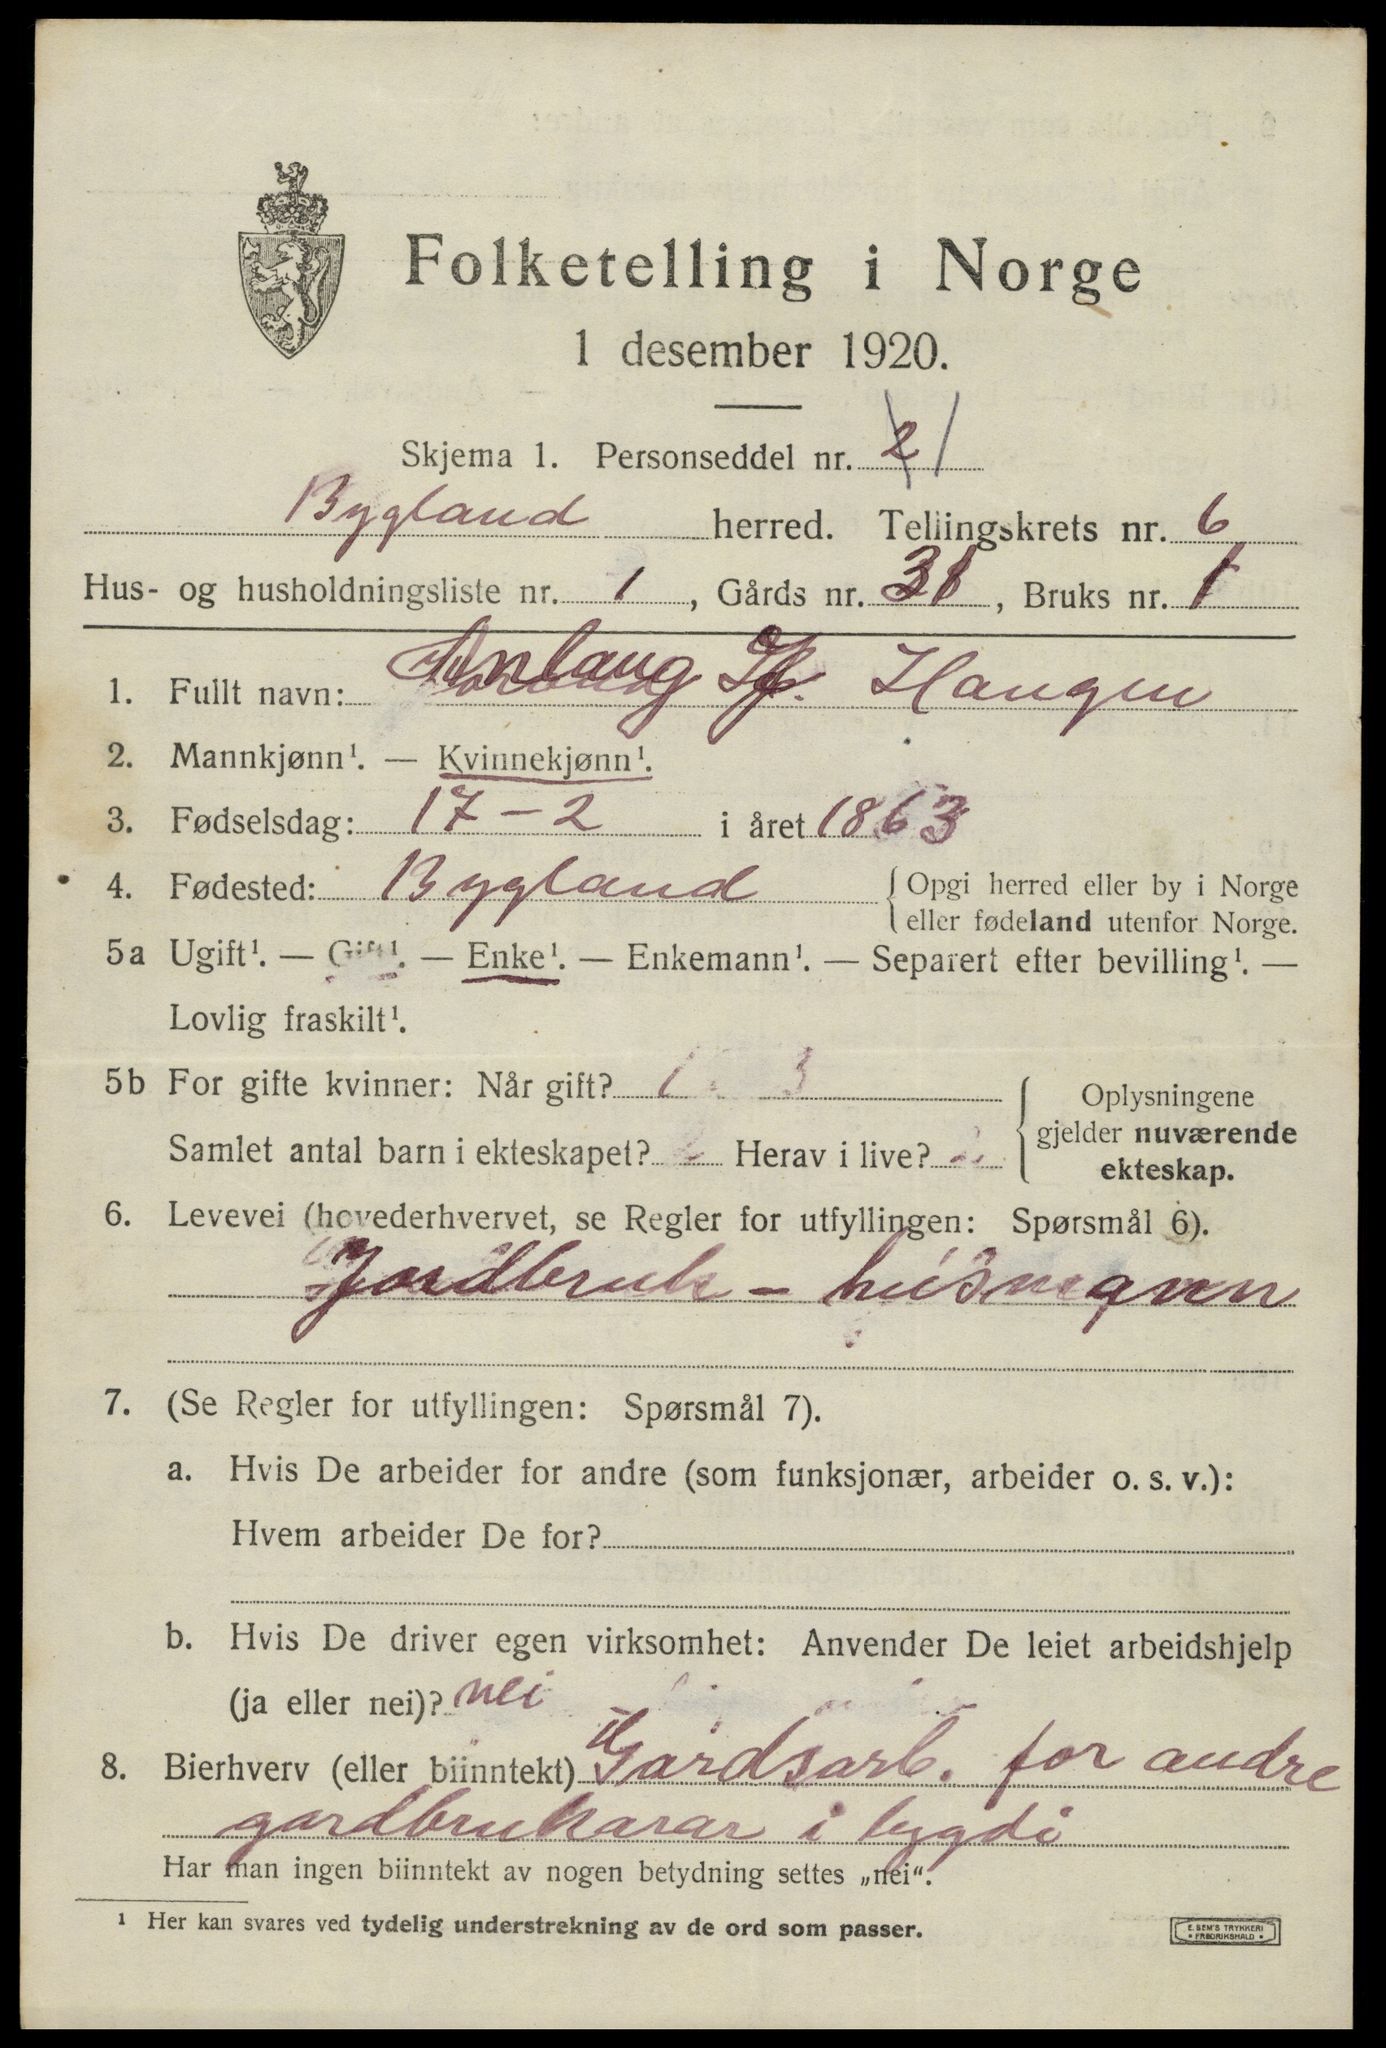 Folketelling i Norge
1 desember 1920.
Skjema 1. Personseddel nr. 2 1
Bygland herred. Tellingskrets nr. 6
Hus- og husholdningsliste nr. 1, Gårds nr. 31, Bruks nr. 1
1. Fullt navn: Anlaug Haugen
2. Mannkjønn¹. — Kvinnekjønn¹.
3. Fødselsdag: 17 – 2 i året 1863
4. Fødested: Bygland { Opgi herred eller by i Norge
eller fødeland utenfor Norge.
5a Ugift¹. — Gift¹. — Enke¹. — Enkemann¹. — Separert efter bevilling¹. —
Lovlig fraskilt¹.
5b For gifte kvinner: Når gift? 1 3
Samlet antal barn i ekteskapet? 2 Herav i live? 2
{ Oplysningene
gjelder nuværende
ekteskap.
6. Levevei (hovederhvervet, se Regler for utfyllingen: Spørsmål 6).
Jordbruk – húsmann
7. (Se Regler for utfyllingen: Spørsmål 7).
a. Hvis De arbeider for andre (som funksjonær, arbeider o. s. v.):
Hvem arbeider De for?
b. Hvis De driver egen virksomhet: Anvender De leiet arbeidshjelp
(ja eller nei)? nei
8. Bierhverv (eller biinntekt) Gardsarb. for andre
gardbrukarar i bygdi
Har man ingen biinntekt av nogen betydning settes „nei“.
¹ Her kan svares ved tydelig understrekning av de ord som passer.
E. SEM'S TRYKKERI
• FREDRIKSHALD •